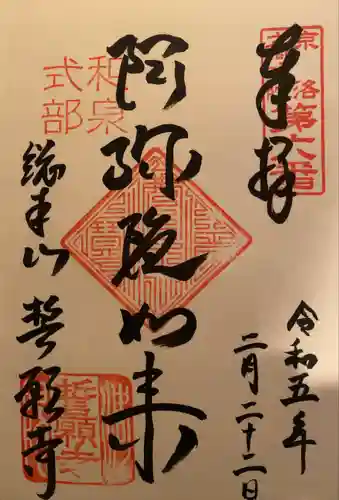 奉拝
第六番
令和五年
二月二十二日
阿弥陀如来
和泉
式部
総本山
誓願寺
誓願寺